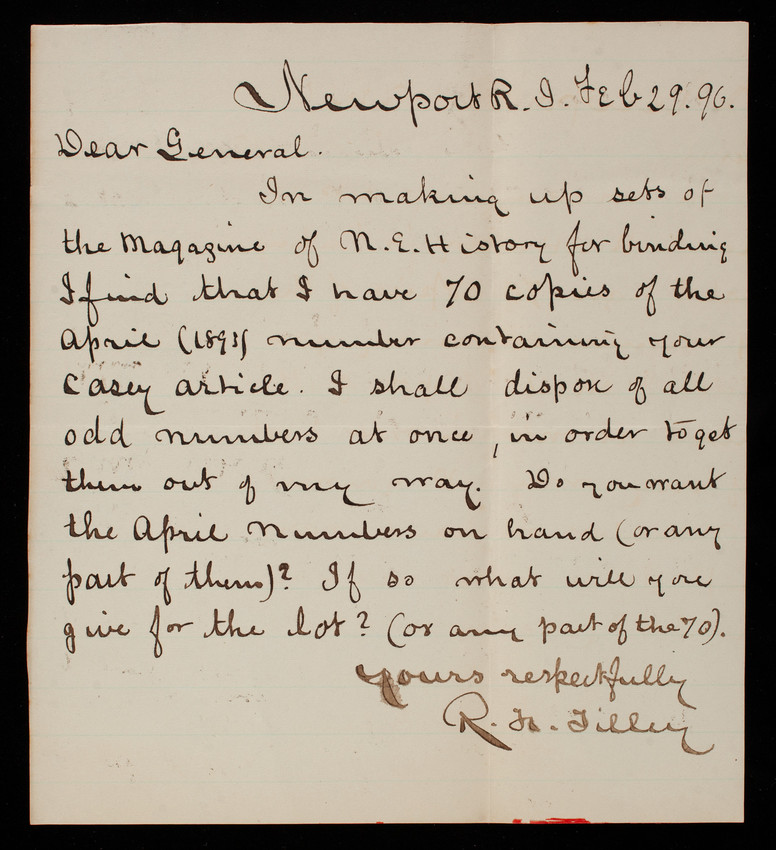 Newport R. I. Feb 29. 96.
Dear General.
In making up sets of
the Magazine of N. E. History for binding
I find that I have 70 copies of the
April (1893) number containing your
Casey article. I shall dispose of all
odd numbers at once, in order to get
them out of my way. Do you want
the April numbers on hand (or any
part of them)? If so what will you
give for the lot? (or any part of the 70).
Yours respectfully
R. H. Tilley